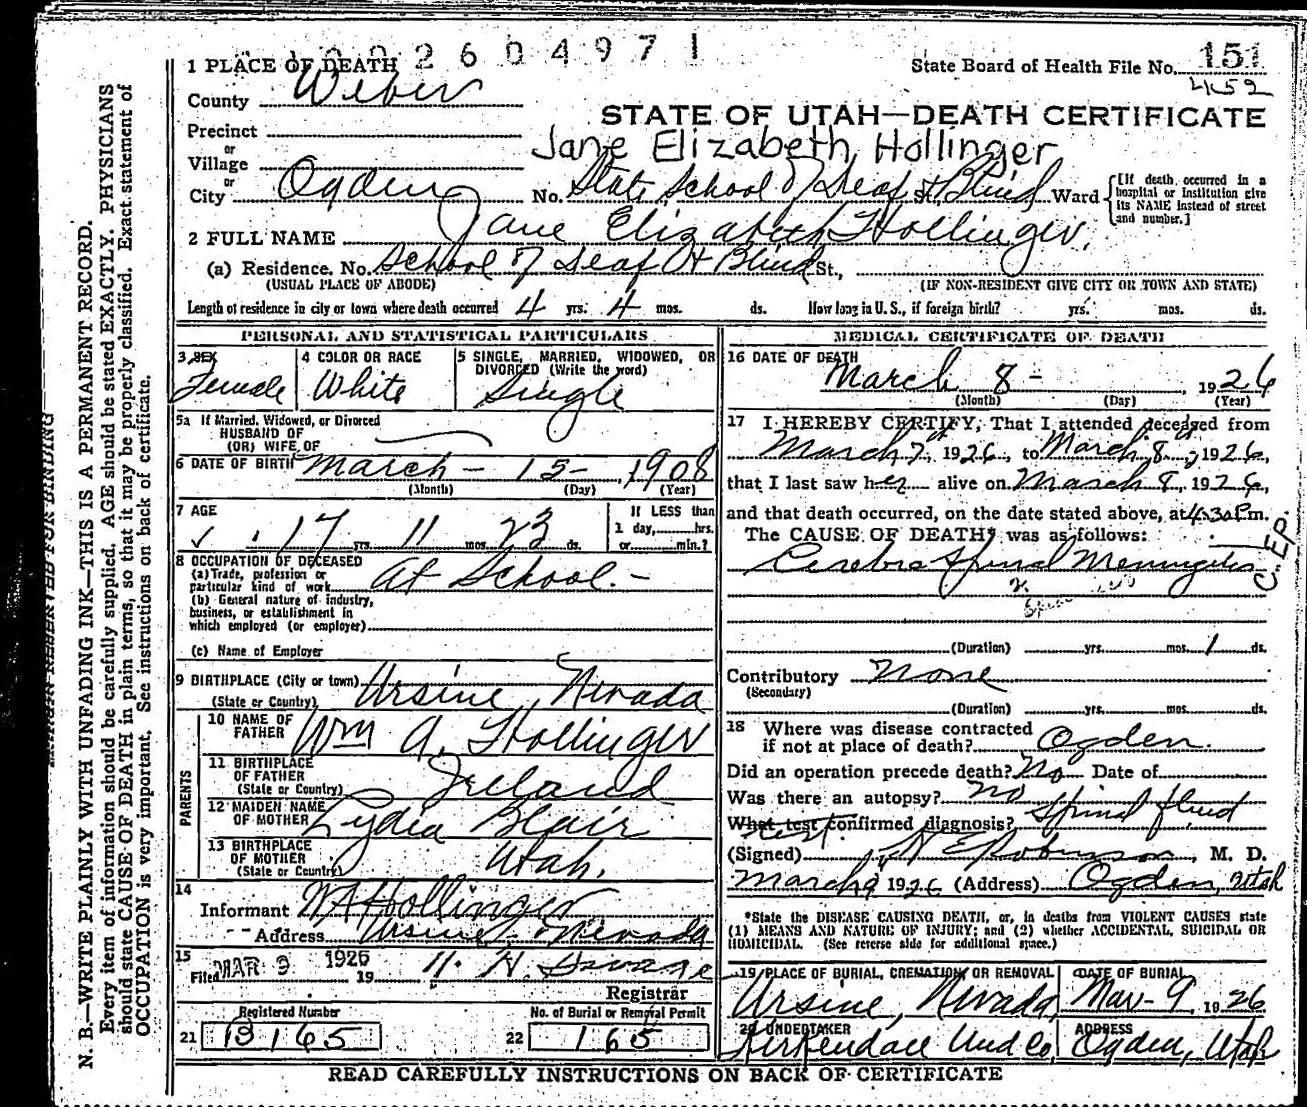 1002604971
1 PLACE OF DEATH
State Board of Health File No. 151
County Weber
STATE OF UTAH—DEATH CERTIFICATE
Precinct
Jane Elizabeth Hollinger
or
Village
or
City Ogden No. State School of Deaf & Blind St. Ward
[If death occurred in a hospital or institution give its NAME instead of street and number.]
2 FULL NAME Jane Elizabeth Hollinger.
(a) Residence. No. School of Deaf & Blind St.,
(USUAL PLACE OF ABODE) (IF NON-RESIDENT GIVE CITY OR TOWN AND STATE)
Length of residence in city or town where death occurred 4 yrs. 4 mos. ds. How long in U.S., if foreign birth? yrs. mos. ds.
PERSONAL AND STATISTICAL PARTICULARS
3 SEX Female
4 COLOR OR RACE White
5 SINGLE, MARRIED, WIDOWED, OR DIVORCED (Write the word) Single
5a If Married, Widowed, or Divorced
HUSBAND OF
(OR) WIFE OF
6 DATE OF BIRTH March - 15 - 1908
(Month) (Day) (Year)
7 AGE 17 yrs. 11 mos. 23 ds.
If LESS than
1 day, hrs.
or min.?
8 OCCUPATION OF DECEASED
(a) Trade, profession or
particular kind of work At School.-
(b) General nature of industry,
business, or establishment in
which employed (or employer)
(c) Name of Employer
9 BIRTHPLACE (City or town) Ursine, Nevada
(State or Country)
PARENTS
10 NAME OF FATHER Wm A. Hollinger
11 BIRTHPLACE OF FATHER Ireland
(State or Country)
12 MAIDEN NAME OF MOTHER Lydia Blair
13 BIRTHPLACE OF MOTHER Utah.
(State or Country)
14
Informant W A Hollinger
Address Ursine, Nevada
15
Filed MAR 9 1926 19 H. Savage
Registrar
Registered Number
21 B 165
No. of Burial or Removal Permit
22 165
MEDICAL CERTIFICATE OF DEATH
16 DATE OF DEATH March 8 - , 1926
(Month) (Day) (Year)
17 I HEREBY CERTIFY, That I attended deceased from
March 7th, 1926, to March 8th, 1926,
that I last saw her alive on March 8, 1926,
and that death occurred, on the date stated above, at 4:30 P.m.
The CAUSE OF DEATH* was as follows:
Cerebro Spinal Meningitis
C. E.P.
(Duration) yrs. mos. 1 ds.
Contributory None
(Secondary)
(Duration) yrs. mos. ds.
18 Where was disease contracted
if not at place of death? Ogden.
Did an operation precede death? No Date of
Was there an autopsy? No
What test confirmed diagnosis? Spinal fluid
test
(Signed) H E Robinson, M. D.
March 9 1926 (Address) Ogden, Utah
*State the DISEASE CAUSING DEATH, or, in deaths from VIOLENT CAUSES state
(1) MEANS AND NATURE OF INJURY; and (2) whether ACCIDENTAL, SUICIDAL OR
HOMICIDAL. (See reverse side for additional space.)
19 PLACE OF BURIAL, CREMATION, OR REMOVAL
Ursine, Nevada,
DATE OF BURIAL
Mar - 9, 1926
20 UNDERTAKER
Kirkendall Und Co.
ADDRESS
Ogden, Utah
READ CAREFULLY INSTRUCTIONS ON BACK OF CERTIFICATE
MARGIN RESERVED FOR BINDING
N. B.—WRITE PLAINLY WITH UNFADING INK—THIS IS A PERMANENT RECORD.
Every item of information should be carefully supplied. AGE should be stated EXACTLY. PHYSICIANS
should state CAUSE OF DEATH in plain terms, so that it may be properly classified. Exact statement of
OCCUPATION is very important. See instructions on back of certificate.